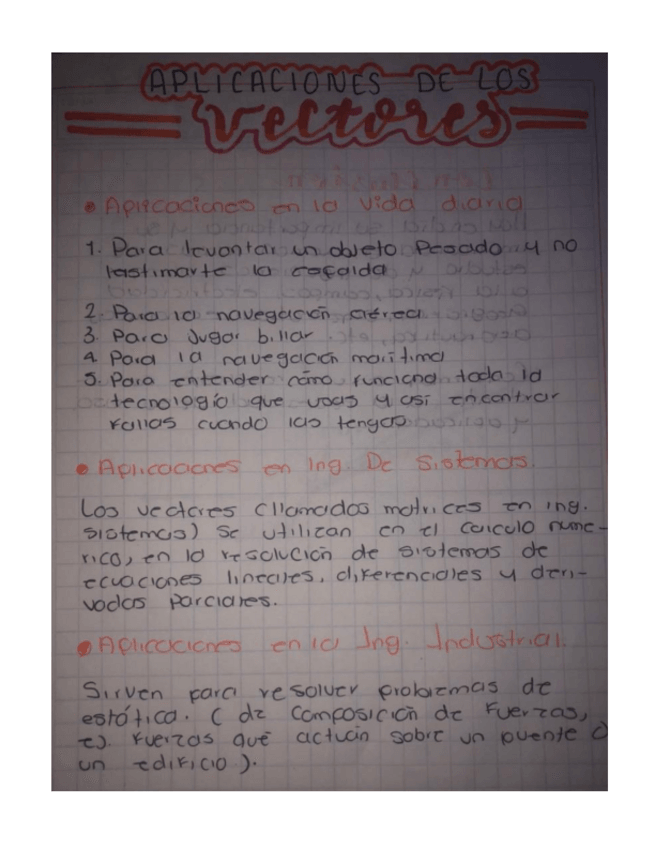 APLICACIONES DE LOS
vectores
• Aplicaciones en la vida diaria
1. Para levantar un objeto pesado y no
lastimarte la espalda
2. Para la navegación aérea
3. Para Jugar billar
4. Para la navegación marítima
5. Para entender cómo funciona toda la
tecnología que usas y así encontrar
fallas cuando las tengas
• Aplicaciones en Ing. De Sistemas
Los vectores (llamados matrices en ing.
sistemas) se utilizan en el calculo nume-
rico, en la resolución de sistemas de
ecuaciones lineales, diferenciales y deri-
vadas parciales.
• Aplicaciones en la Ing. Industrial.
Sirven para resolver problemas de
estática. ( de composición de fuerzas,
ej. fuerzas que actúan sobre un puente o
un edificio ).